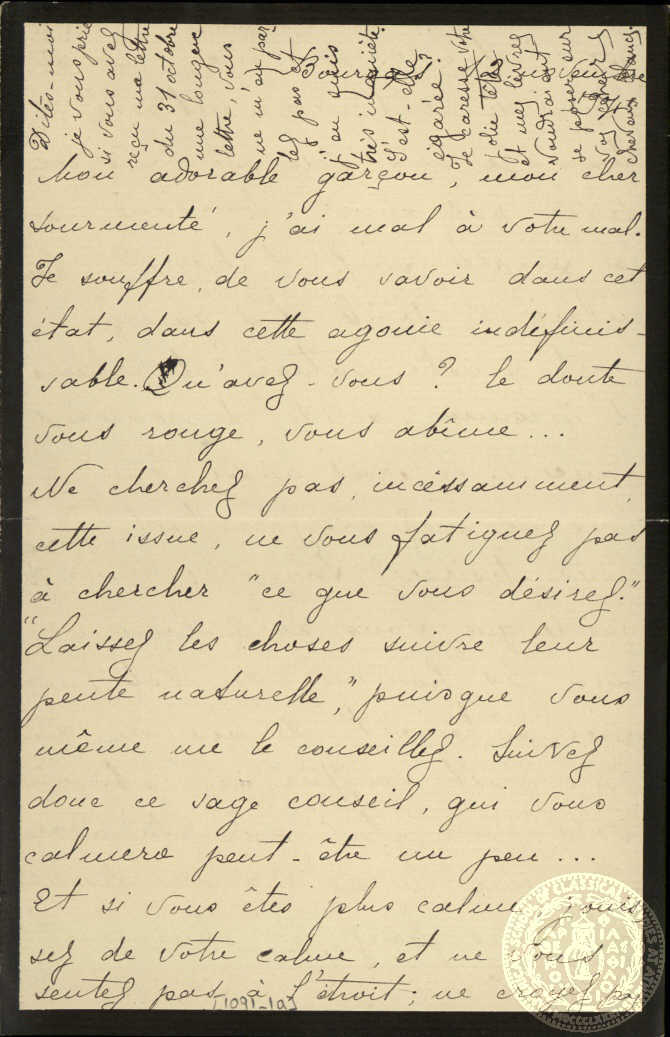 Dites-moi
je vous prie
si vous avez
reçu ma lettre
du 31 octobre
une longue
lettre, vous
ne m'en par
lez pas et
j'en suis
très inquiète.
S'est-elle
égarée?
Je caresse votre
jolie tête
et mes lèvres
voudraient
se poser sur
vos
cheveux
Mon adorable garçon, mon cher
tourmenté, j'ai mal à votre mal.
Je souffre de vous savoir dans cet
état, dans cette agonie indéfinis-
sable. Qu'avez-vous? Le doute
vous ronge, vous abîme...
Ne cherchez pas, incéssamment,
cette issue, ne vous fatiguez pas
à chercher "ce que vous désirez."
"Laissez les choses suivre leur
pente naturelle", puisque vous
même me le conseillez. Suivez
donc ce sage conseil, qui vous
calmera peut-être un peu...
Et si vous êtes plus calme, jouis
sez de votre calme, et ne vous
sentez pas à l'étroit; ne croyez pas
[1091-1a]